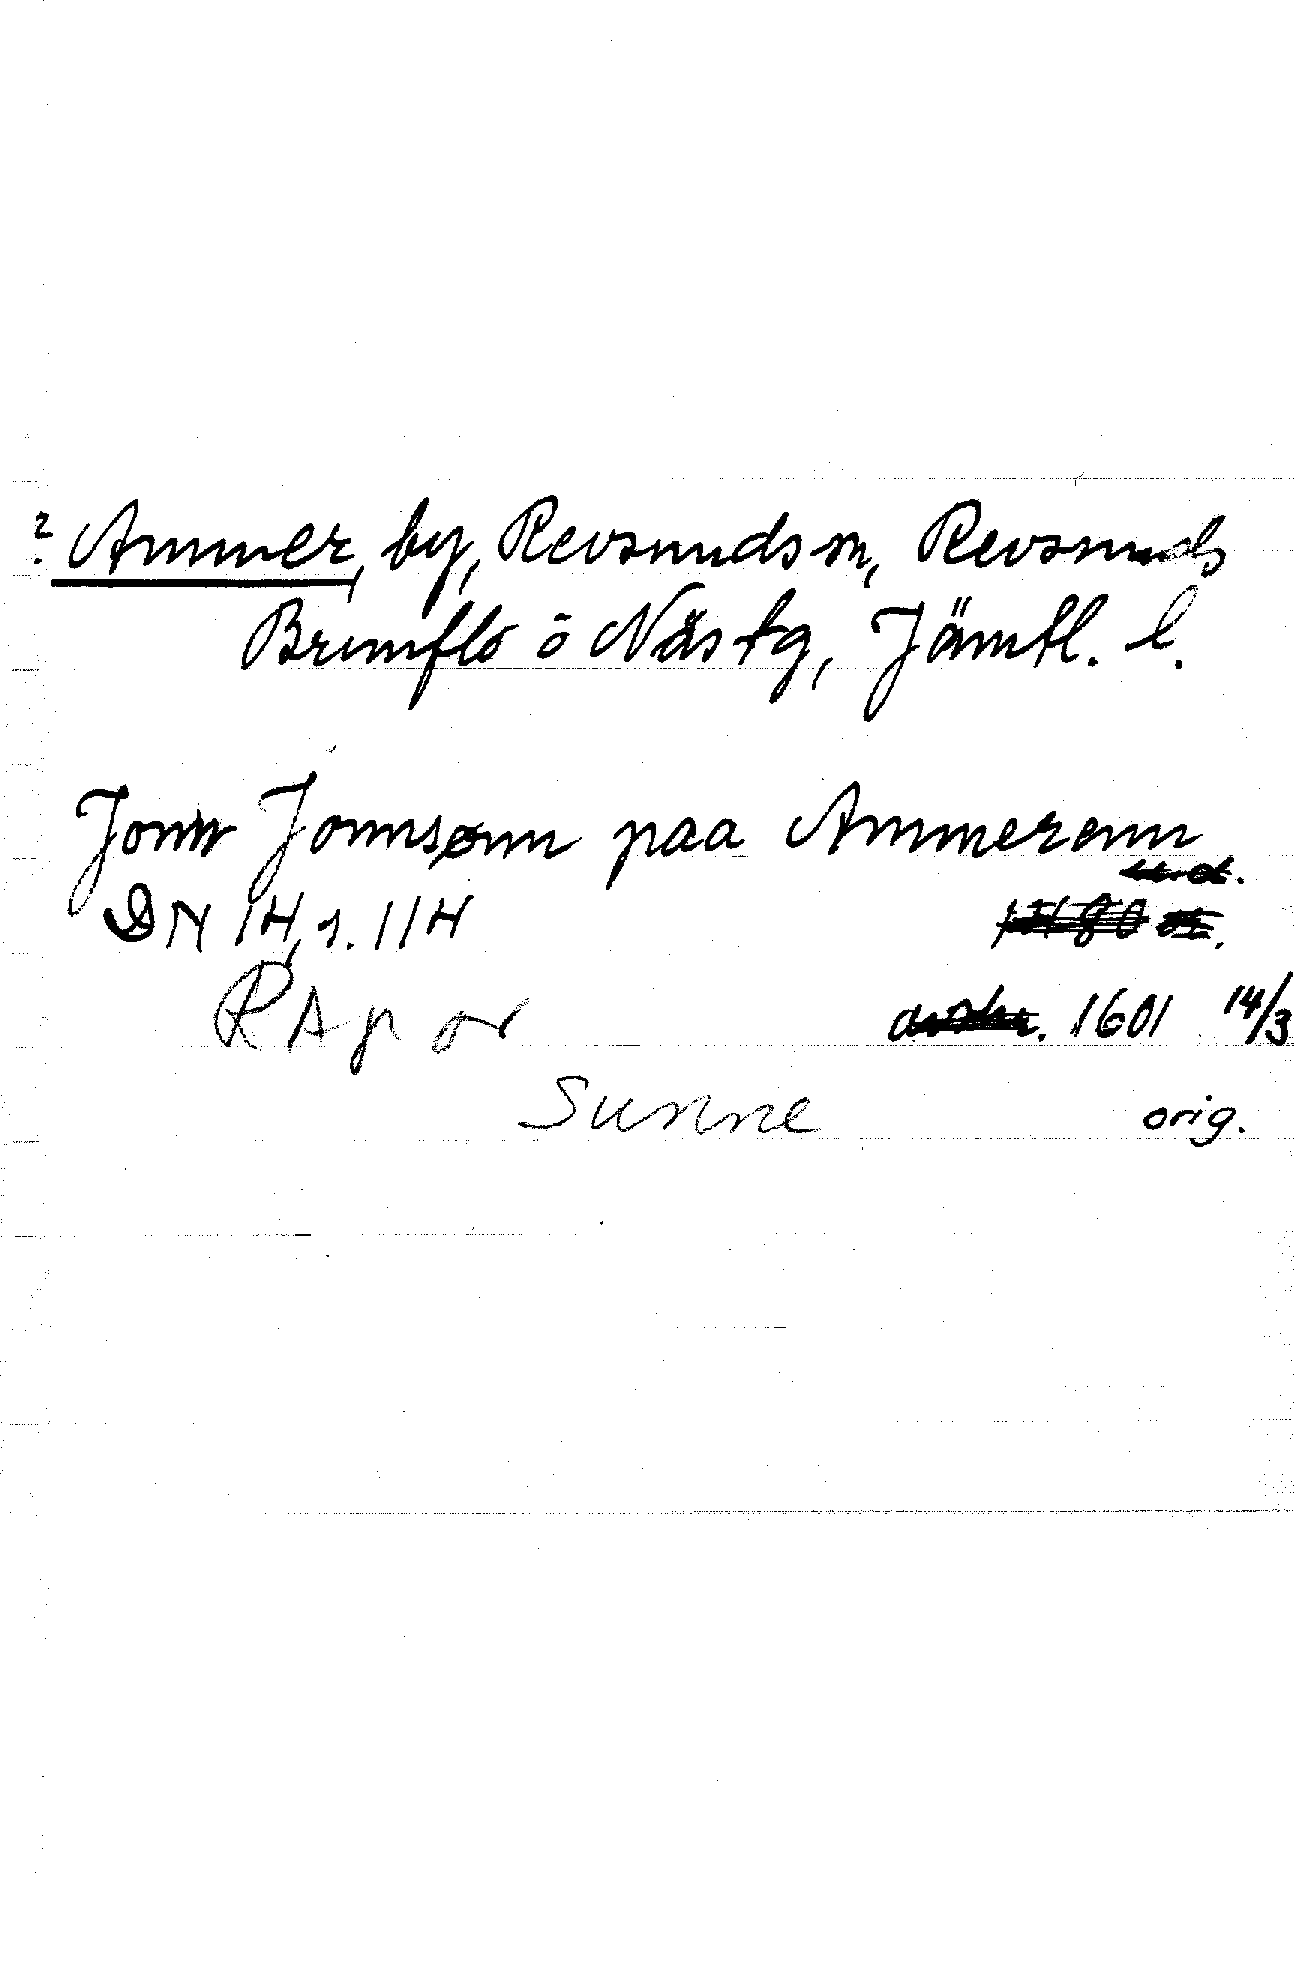 ? Ammer, by, Revsunds sn, Revsunds
Brunflo o Näs tg, Jämtl. l.
Jonn Jonnsønn paa Ammerenn
u.d.
DN 14, s. 114 1480 
RAp or 1601 14/3
Sunne orig.